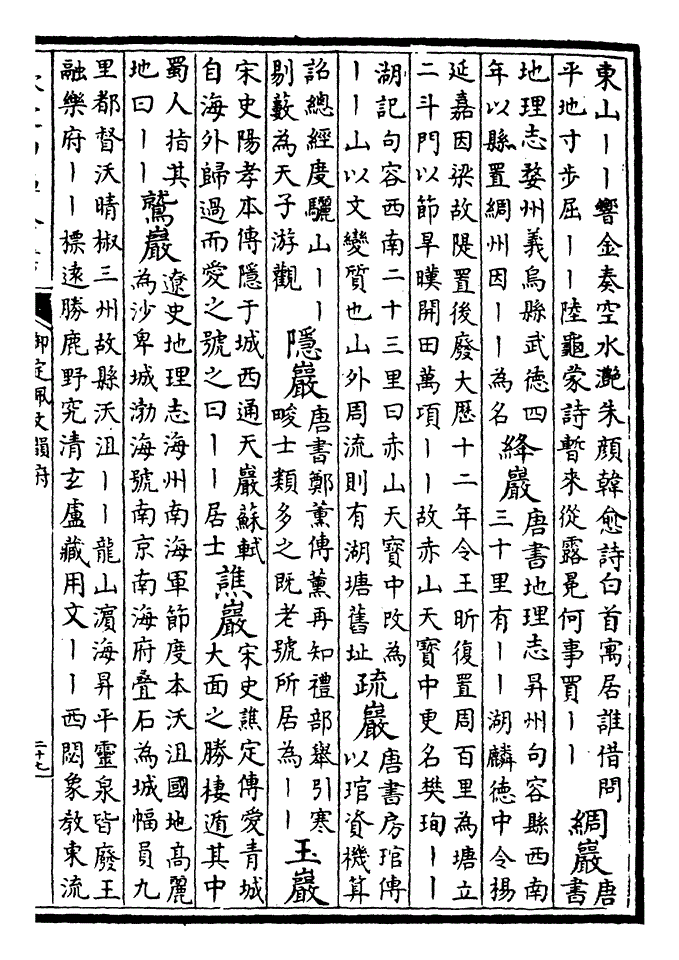 東山丨丨響金奏空水灔朱顔韓愈詩白首寓居誰借問
平地寸步屈丨丨陸龜蒙詩暫來從露冕何事買丨丨
綢巖
唐
書
地理志婺州義烏縣武德四
年以縣置綢州因丨丨為名
絳巖
唐書地理志昇州句容縣西南
三十里有丨丨湖麟德中令楊
延嘉因梁故隄置後廢大歴十二年令王昕復置周百里為塘立
二斗門以節旱暵開田萬頃丨丨故赤山天寳中更名樊珣丨丨
湖記句容西南二十三里曰赤山天寳中改為
丨丨山以文變質也山外周流則有湖塘舊址
疏巖
唐書房琯傳
以琯資機算
詔總經度驪山丨丨
剔藪為天子游觀
隱巖
唐書鄭薰傳薰再知禮部舉引寒
畯士類多之既老號所居為丨丨
玉巖
宋史陽孝本傳隱于城西通天巖蘇軾
自海外歸過而愛之號之曰丨丨居士
譙巖
宋史譙定傳愛青城
大面之勝棲遁其中
蜀人指其
地曰丨丨
鷲巖
遼史地理志海州南海軍節度本沃沮國地高麗
為沙卑城渤海號南京南海府疊石為城幅員九
里都督沃晴椒三州故縣沃沮丨丨龍山濱海昇平靈泉皆廢王
融樂府丨丨標遠勝鹿野究清玄盧藏用文丨丨西閟象教東流
御定佩文韻府